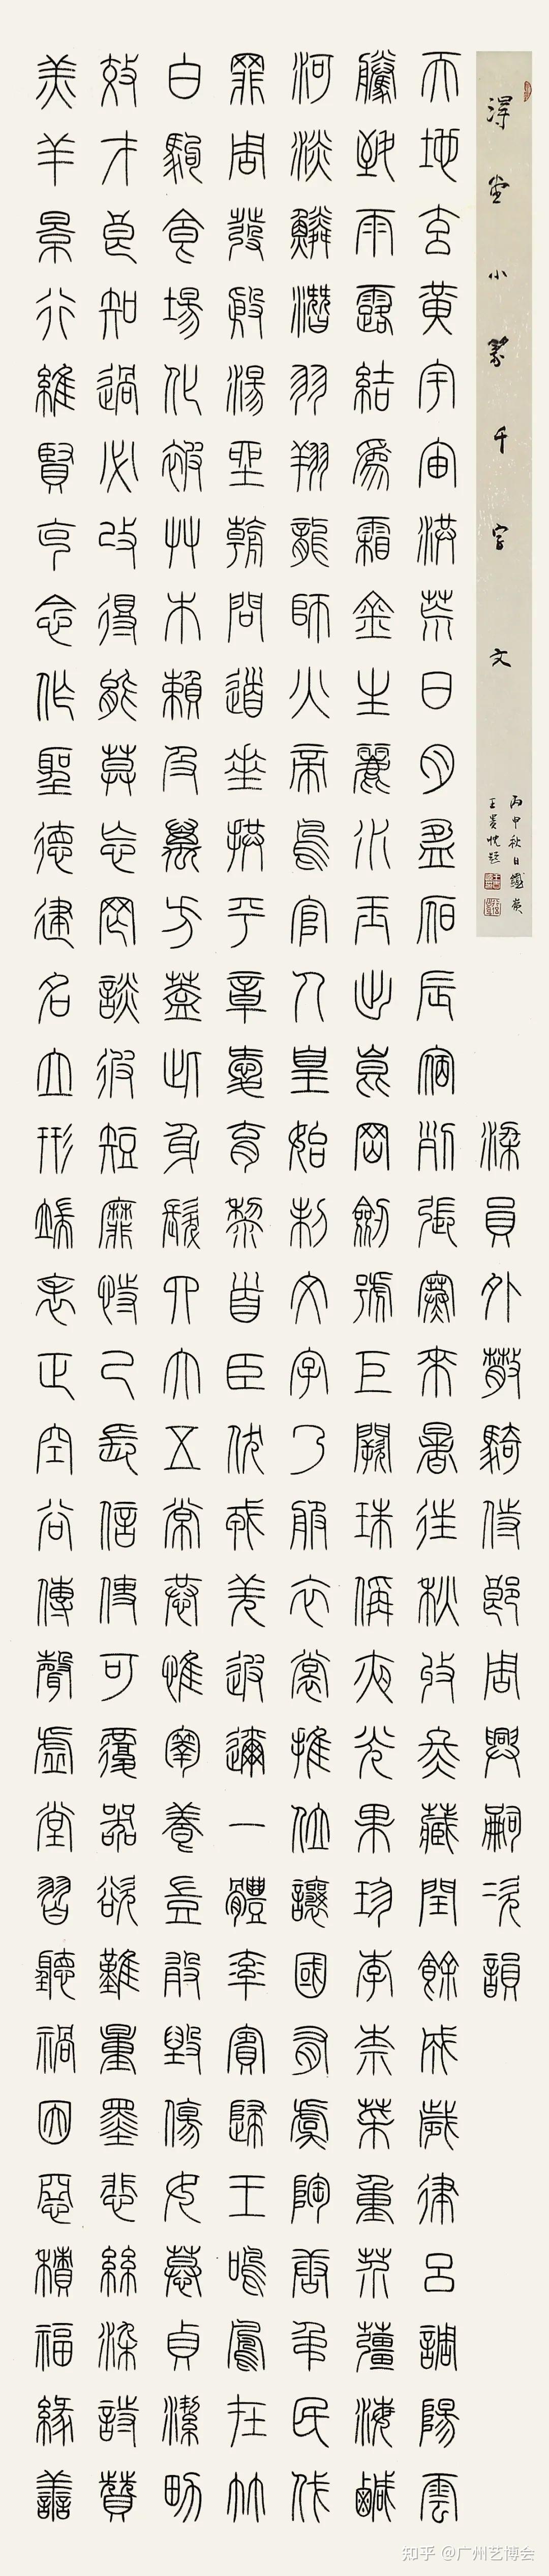 堂小篆千字文
丙申秋日鐵夷
王貴忱題
梁員外散騎侍郎周興嗣次韻
天地玄黃宇宙洪荒日月盈昃辰宿列張寒來暑往秋收冬藏閏餘成歲律呂調陽雲
騰致雨露結爲霜金生麗水玉出崑岡劍號巨闕珠稱夜光果珍李柰菜重芥薑海鹹
河淡鱗潛羽翔龍師火帝鳥官人皇始制文字乃服衣裳推位讓國有虞陶唐弔民伐
罪周發殷湯坐朝問道垂拱平章愛育黎首臣伏戎羌遐邇一體率賓歸王鳴鳳在竹
白駒食場化被草木賴及萬方蓋此身髮四大五常恭惟鞠養豈敢毀傷女慕貞潔男
效才良知過必改得能莫忘罔談彼短靡恃己長信使可覆器欲難量墨悲絲染詩贊
羔羊景行維賢克念作聖德建名立形端表正空谷傳聲虛堂習聽禍因惡積福緣善
知乎 @广州艺博会